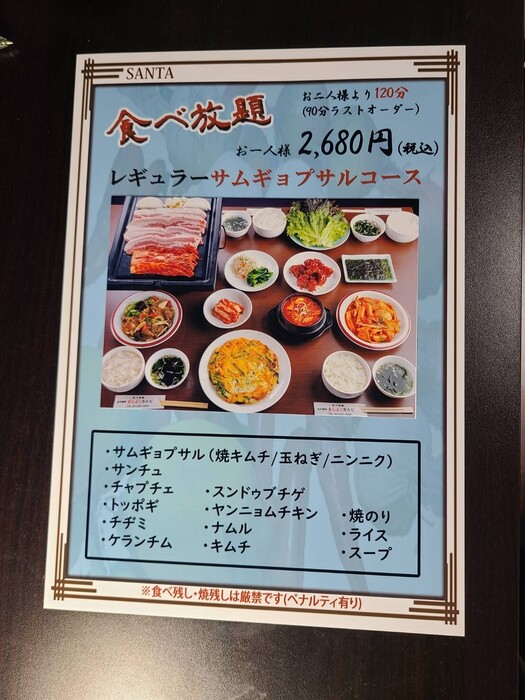 SANTA
食べ放題
お二人様より120分
(90分ラストオーダー)
お一人様 2,680円(税込)
レギュラーサムギョプサルコース
・サムギョプサル(焼キムチ/玉ねぎ/ニンニク)
・サンチュ
・チャプチェ
・トッポギ
・チヂミ
・ケランチム
・スンドゥブチゲ
・ヤンニョムチキン
・ナムル
・キムチ
・焼のり
・ライス
・スープ
※食べ残し・焼残しは厳禁です(ペナルティ有り)